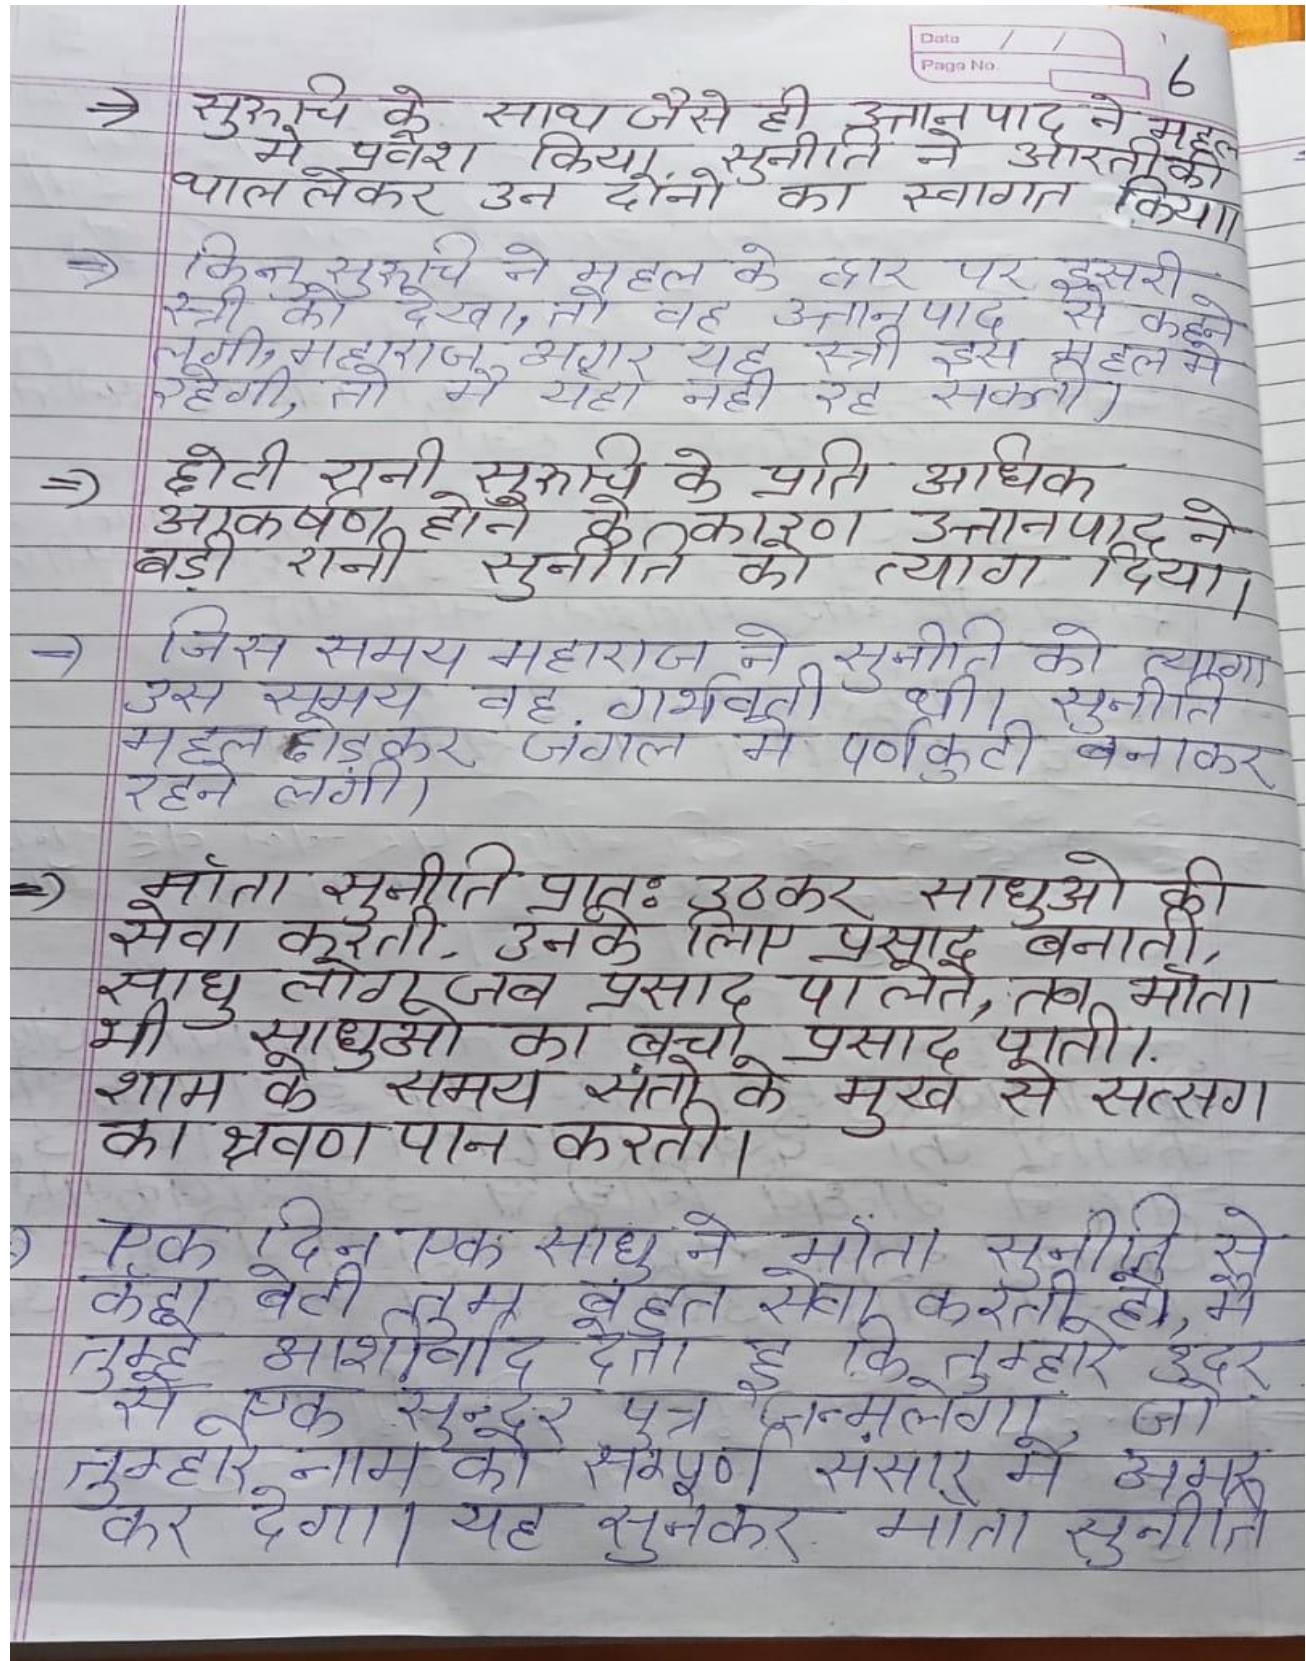 Date / /
Page No.
6
⇒ सुरूचि के साथ जैसे ही उत्तानपाद ने महल
मे प्रवेश किया, सुनीति ने आरती की
थाल लेकर उन दोंनो का स्वागत किया।
⇒ किन्तु सुरूचि ने महल के द्वार पर दुसरी
स्त्री को देखा, तो वह उत्तानपाद से कहने
लगी, महाराज अगर यह स्त्री इस महल मे
रहेगी, तो मै यहा नही रह सकती।
⇒ छोटी रानी सुरूचि के प्रति अधिक
आकर्षण होने के कारण उत्तानपाद ने
बड़ी रानी सुनीति को त्याग दिया।
⇒ जिस समय महाराज ने सुनीति को त्यागा
उस समय वह गर्भवती थी। सुनीति
महल छोड़कर जंगल मे पर्णकुटी बनाकर
रहने लगी।
⇒ माँता सुनीति प्रातः उठकर साधुओ की
सेवा करती, उनके लिए प्रसाद बनाती,
साधु लोग जब प्रसाद पा लेते, तब माँता
भी साधुओ का बचा प्रसाद पाती।
शाम के समय संतो के मुख से सत्सग
का श्रवण पान करती।
एक दिन एक साधु ने माँता सुनीति से
कहा बेटी तुम बहुत सेवा करती हो, मै
तुम्हे आशीर्वाद देता हु कि तुम्हारे उदर
से एक सुन्दर पुत्र जन्म लेगा, जो
तुम्हारे नाम को सम्पूर्ण संसार मे अमर
कर देगा। यह सुनकर माता सुनीति